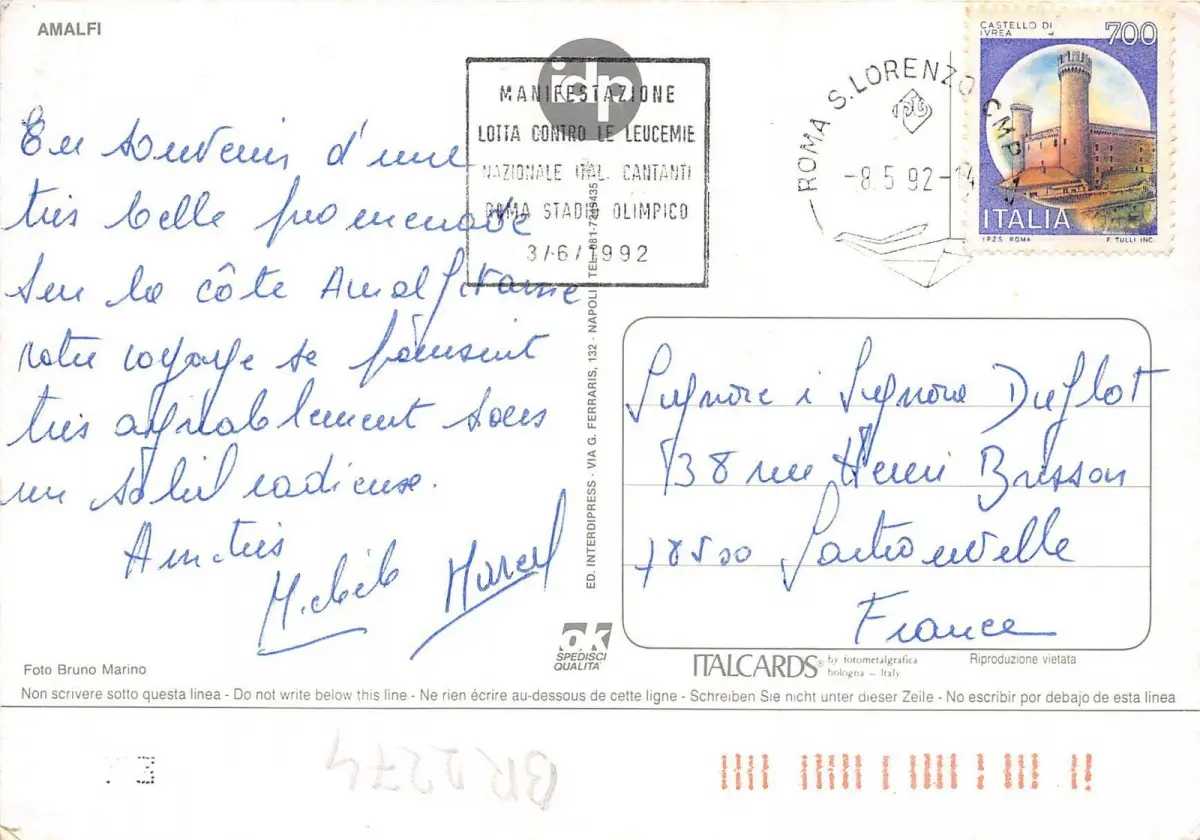 AMALFI
CASTELLO DI
IVREA
700
ITALIA
I.P.Z.S. ROMA
F. TULLI INC.
idp
MANIFESTAZIONE
LOTTA CONTRO LE LEUCEMIE
NAZIONALE ITAL. CANTANTI
ROMA STADIO OLIMPICO
3/6/1992
ROMA S. LORENZO CMP
-8.5 92-14
En souvenir d'une
très belle promenade
sur la côte Amalfitaine
notre voyage se poursuit
très agréablement sous
un soleil radieuse.
Amitiés
Michèle Marcel
ED. INTERDIPRESS - VIA G. FERRARIS, 132 - NAPOLI
Signore i Signora Duflot
138 rue Henri Brisson
78500 Sartrouville
France
ok
SPEDISCI
QUALITA'
Foto Bruno Marino
ITALCARDS® by fotometalgrafica
bologna - Italy
Riproduzione vietata
Non scrivere sotto questa linea - Do not write below this line - Ne rien écrire au-dessous de cette ligne - Schreiben Sie nicht unter dieser Zeile - No escribir por debajo de esta linea
BR2274